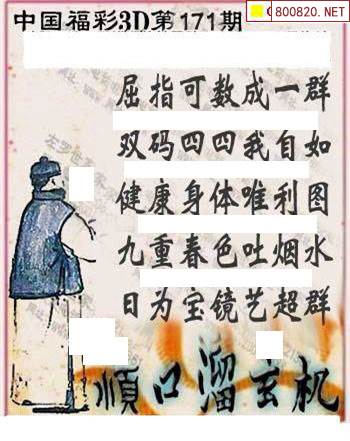 800820.NET
中国福彩3D第171期
屈指可数成一群
双码四四我自如
健康身体唯利图
九重春色吐烟水
日为宝镜艺超群
順口溜玄机